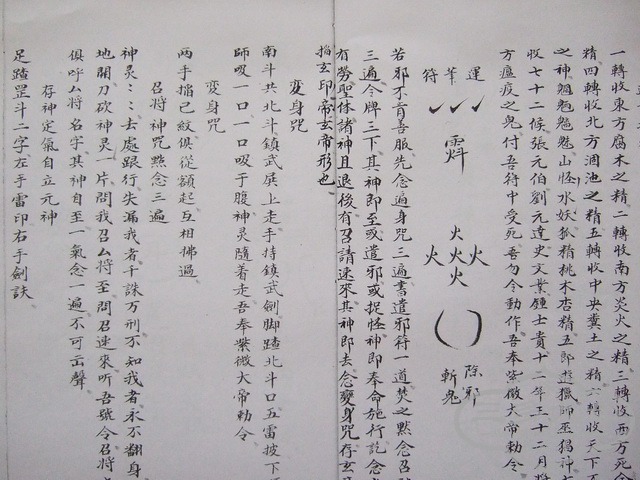 一轉收東方腐木之精二轉收南方炎火之精三轉收西方死金
精四轉收北方涸池之精五轉收中央糞土之精六轉收天下
之神魍魎魑魅山怪水妖狐精桃木杏精五郎遊獵師巫猖神
收七十二候張元伯劉元達史文業鍾士貴十二年王十二月將
方瘟疫之鬼付吾符中受死吾勿令動作吾奉紫微大帝勅令
運筆符
火火火火火
除邪
斬鬼
若邪不肯善服先念遍身咒三遍書遣邪符一道焚之黙念召
三遍令牌三下其神即至或遣邪或捉怪神即奉命施行訖念
有勞聖体諸神且退後有召請速來其神即去念變身咒存玄
掐玄印帝玄帝形也
變身咒
南斗共北斗鎮武展上走手持鎮武劍脚踏北斗口五雷披下
師吸一口一口吸于腹神灵隨着走吾奉紫微大帝勅令
變身咒
兩手掐己紋俱從額起互相拂過
召將神咒黙念三遍
神灵〻〻去處跟行失漏我者千誅万刑不知我者永不翻身
地開刀砍神灵一片問我召厶將至問召速來听吾號令召將
俱呼厶將名字其神自至一氣念一遍不可出聲
存神定氣自立元神
足踏罡斗二字左手雷印右手劍訣